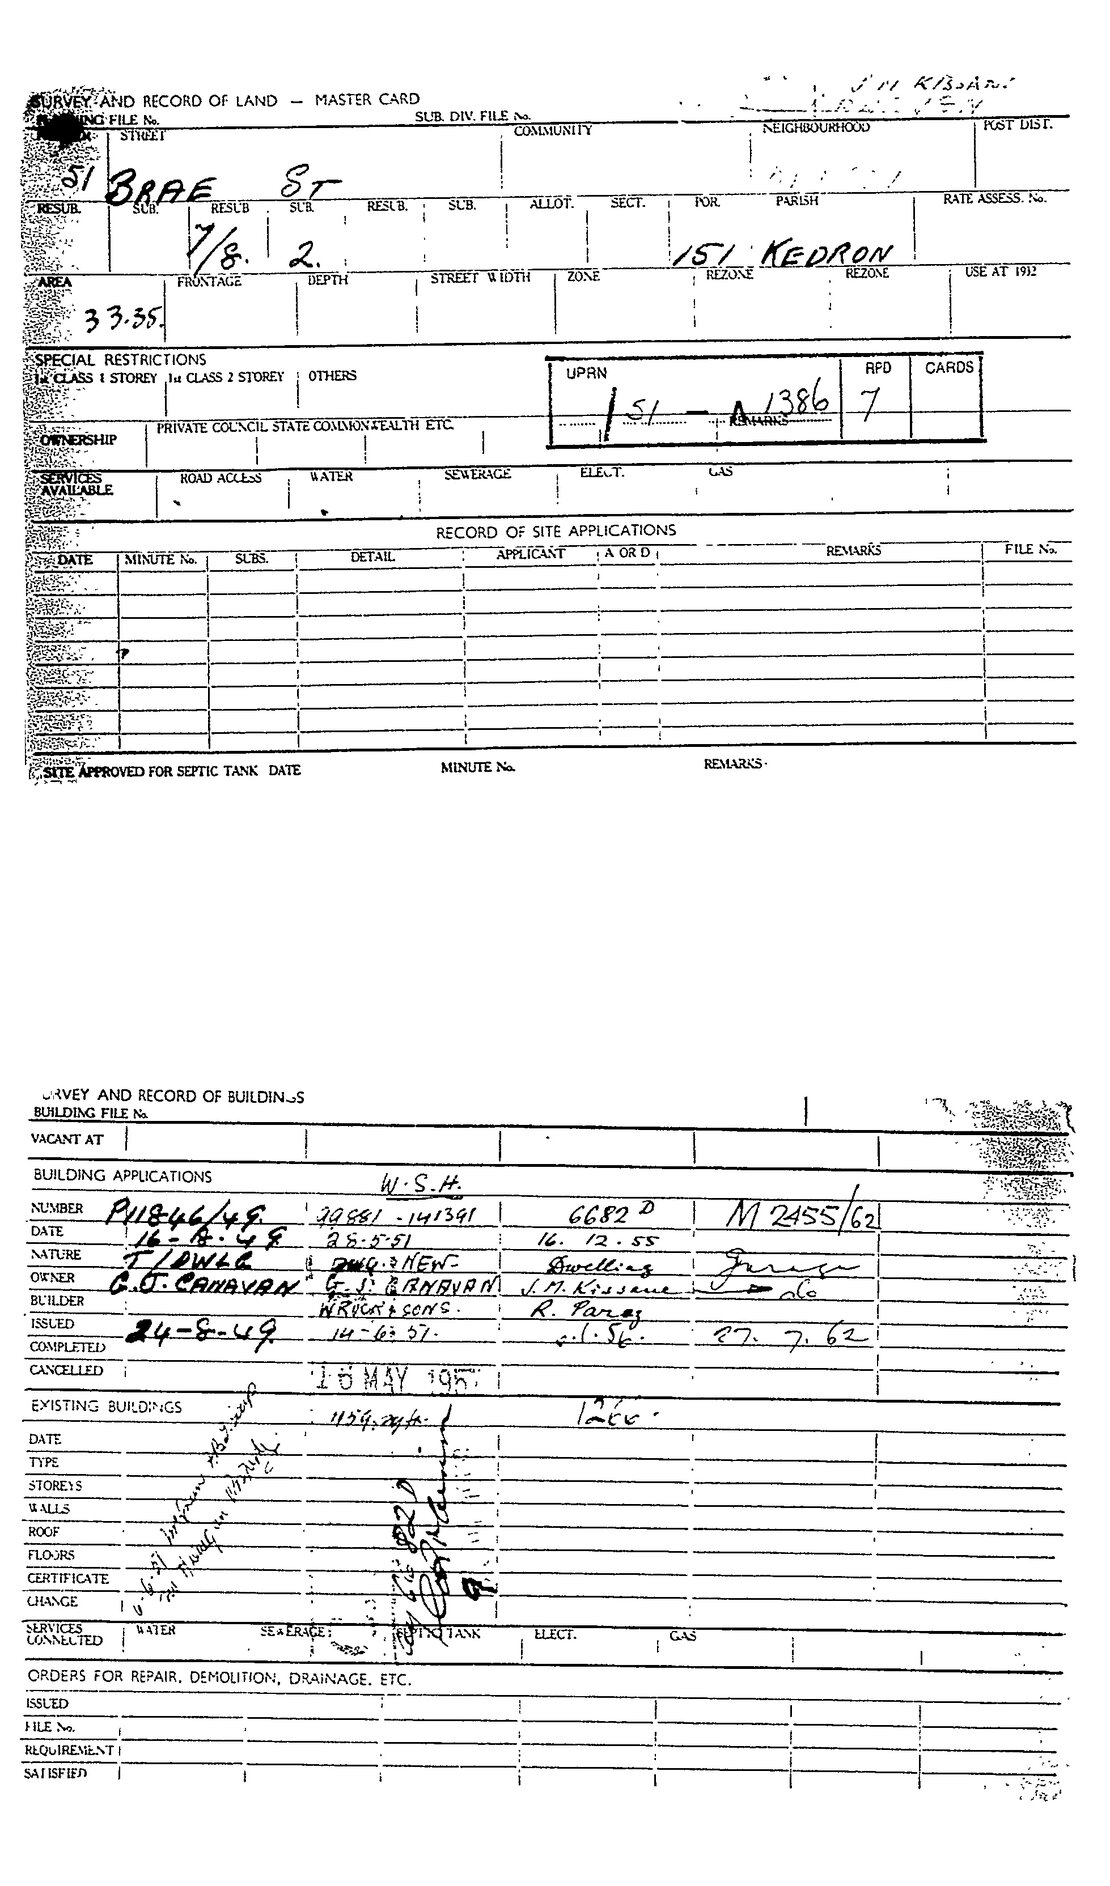 J M KISSANE
SURVEY AND RECORD OF LAND — MASTER CARD
FILE No. SUB. DIV. FILE No.
STREET COMMUNITY NEIGHBOURHOOD POST DIST.
51 BRAE ST
RESUB. SUB. RESUB SUB. RESUB. SUB. ALLOT. SECT. POR. PARISH RATE ASSESS. No.
7/8. 2. 151 KEDRON
AREA FRONTAGE DEPTH STREET WIDTH ZONE REZONE REZONE USE AT 1912
33.35.
SPECIAL RESTRICTIONS
1st CLASS 1 STOREY 1st CLASS 2 STOREY OTHERS
UPRN RPD CARDS
/ 51 — A 1386 7
REMARKS
OWNERSHIP PRIVATE COUNCIL STATE COMMONWEALTH ETC.
SERVICES AVAILABLE ROAD ACCESS WATER SEWERAGE ELECT. GAS
RECORD OF SITE APPLICATIONS
DATE MINUTE No. SUBS. DETAIL APPLICANT A OR D REMARKS FILE No.
SITE APPROVED FOR SEPTIC TANK DATE MINUTE No. REMARKS
SURVEY AND RECORD OF BUILDINGS
BUILDING FILE No.
VACANT AT
BUILDING APPLICATIONS W.S.H.
NUMBER P11846/49. 29881 - 141391 6682 D M 2455/62
DATE 16-8-49 28-5-51 16. 12. 55
NATURE T/DWLG NEW Dwelling Garage
OWNER G.J. CANAVAN G. J. CANAVAN J. M. Kissane do
BUILDER WRUCK & SONS. R.
ISSUED 24-8-49 14-6-51. 27. 7. 62
COMPLETED
CANCELLED 16 MAY 1957
EXISTING BUILDINGS 1159. sq ft.
DATE
TYPE
STOREYS
WALLS
ROOF
FLOORS
CERTIFICATE
CHANGE
6682 D
SERVICES CONNECTED WATER SEWERAGE SEPTIC TANK ELECT. GAS
ORDERS FOR REPAIR, DEMOLITION, DRAINAGE. ETC.
ISSUED
FILE No.
REQUIREMENT
SATISFIED